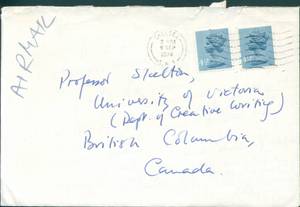 AIRMAIL
Professor Skelton,
University of Victoria
(Dept. of Creative Writing)
British Columbia,
Canada.